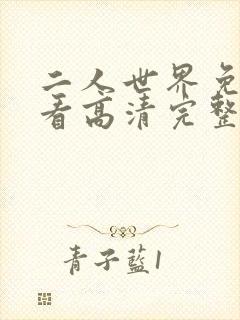 二人世界免
看高清完整
青子藍1